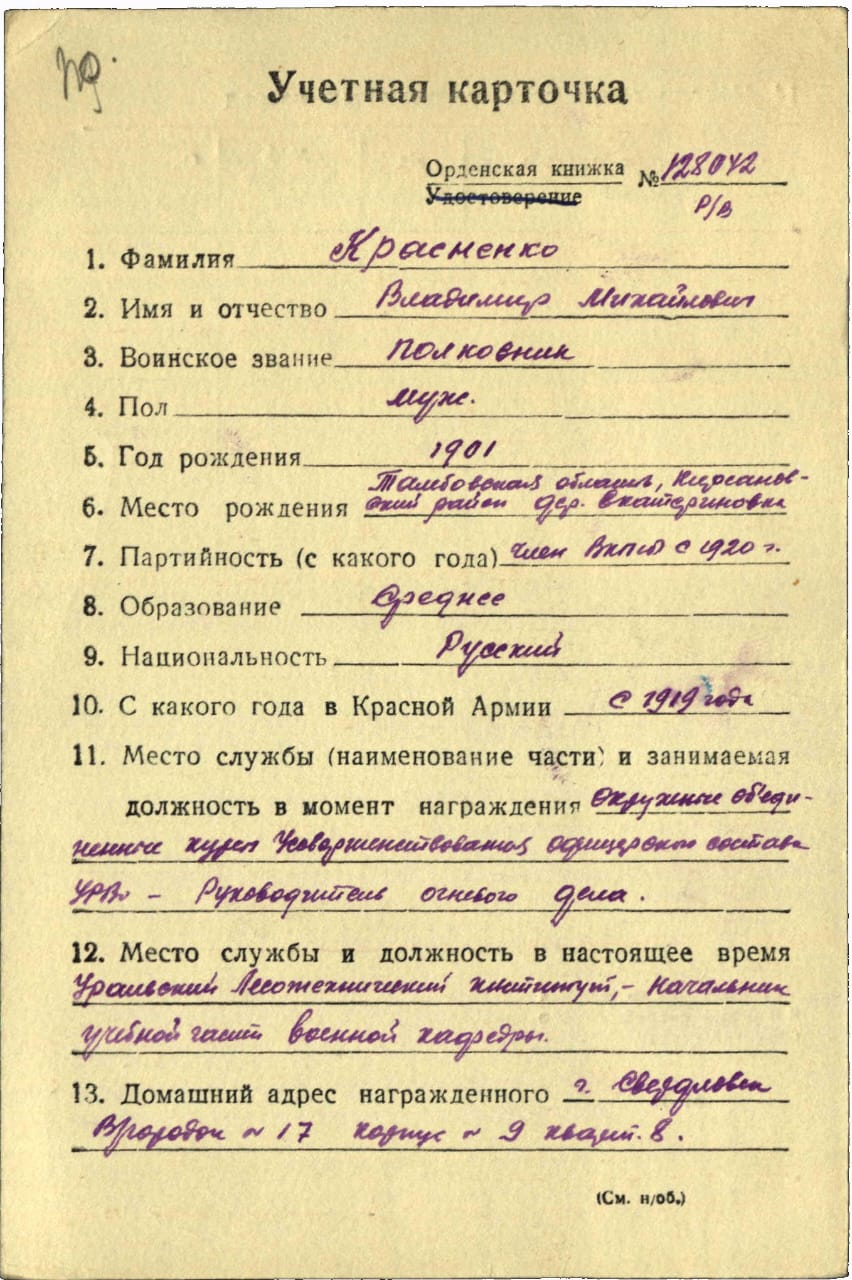 Учетная карточка
Орденская книжка № 128042
Удостоверение Р/В
1. Фамилия Красненко
2. Имя и отчество Владимир Михайлович
3. Воинское звание полковник
4. Пол муж.
5. Год рождения 1901
Тамбовская область, Кирсанов-
6. Место рождения ский район дер. Екатериновка
7. Партийность (с какого года) член ВКП(б) с 1920 г.
8. Образование Среднее
9. Национальность Русский
10. С какого года в Красной Армии с 1919 года
11. Место службы (наименование части) и занимаемая
должность в момент награждения Окружные об'еди-
ненные курсы Усовершенствования офицерского состава
УРВО - Руководитель огневого дела.
12. Место службы и должность в настоящее время
Уральский Лесотехнический институт, - начальник
учебной части военной кафедры.
13. Домашний адрес награжденного г. Свердловск
В/городок № 17 корпус № 9 кварт. 8.
(См. н/об.)